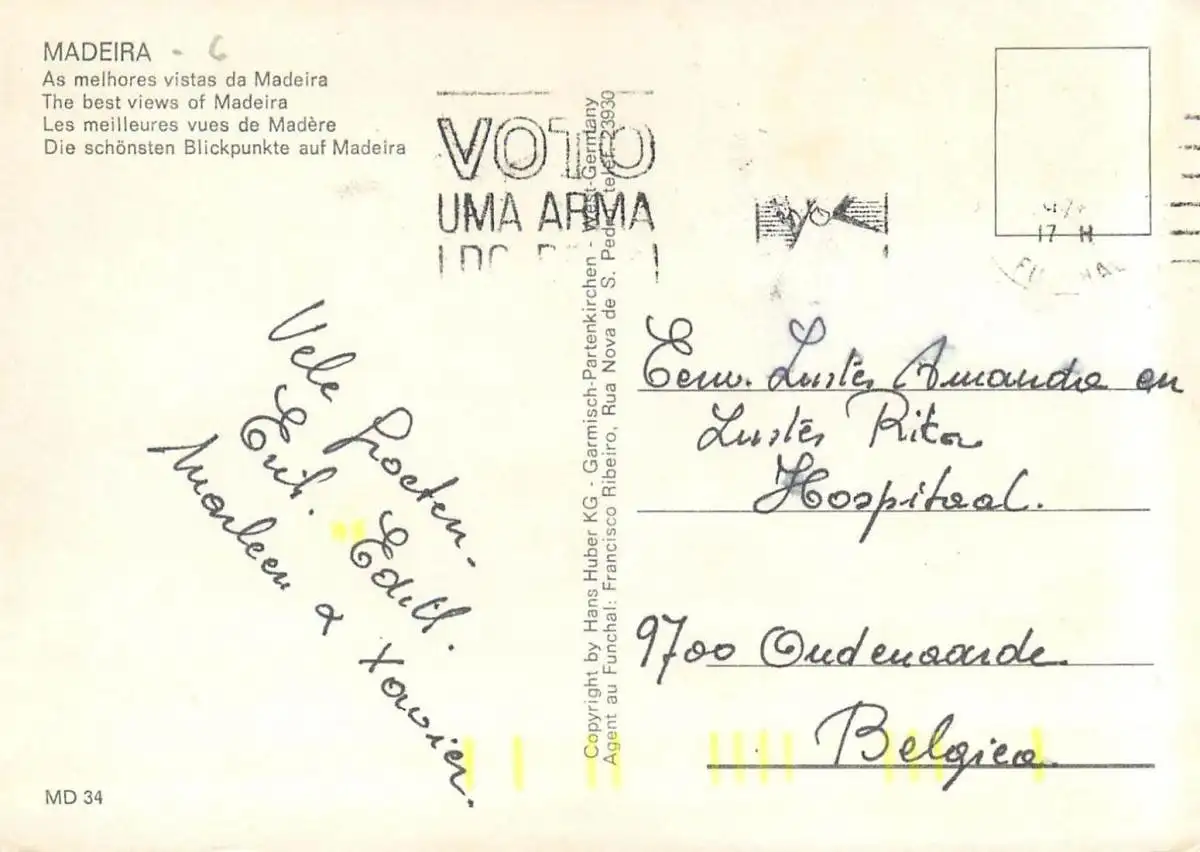 MADEIRA - 6
As melhores vistas da Madeira
The best views of Madeira
Les meilleures vues de Madère
Die schönsten Blickpunkte auf Madeira
VOTO
UMA ARMA
17 H
Vele Groeten.
Erik. Edith.
Marleen & Xavier.
Copyright by Hans Huber KG - Garmisch-Partenkirchen - West-Germany
Agent au Funchal: Francisco Ribeiro, Rua Nova de S. Pedro, telef. 23930
Eerw. Zusters Amanda en
Zusters Rita
Hospitaal.
9700 Oudenaarde.
Belgica.
MD 34